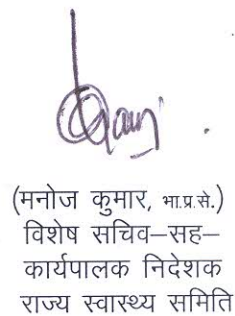 (मनोज कुमार, भा.प्र.से.)
विशेष सचिव–सह–
कार्यपालक निदेशक
राज्य स्वास्थ्य समिति